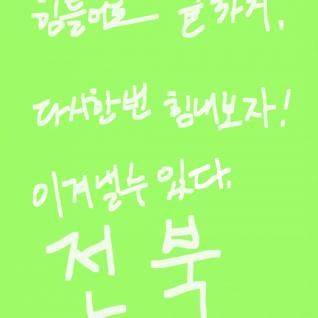 힘들어도
다시한번 힘내보자!
이겨낼수 있다.
전북